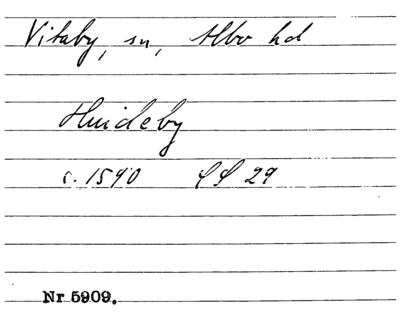 Vitaby, sn, Albo hd
Huideby
c. 1590 LL 29
Nr 5909.